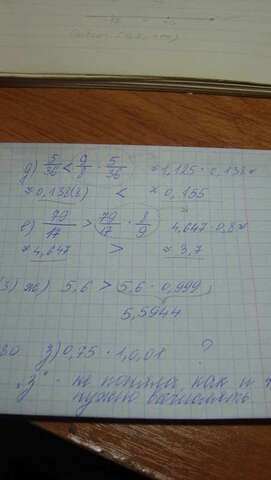 д) 5/36 < 9/8 · 5/36 ≈ 1,125 · 0,138 ≈
≈ 0,138(8) < ≈ 0,155
е) 79/17 > 79/17 · 8/9 4,647 · 0,8 ≈
≈ 4,647 > ≈ 3,7
ж) 5,6 > 5,6 · 0,999
5,5944
з) 0,75 · 1,0,01 ?
"З" - не поняла, как и
нужно вычислять.